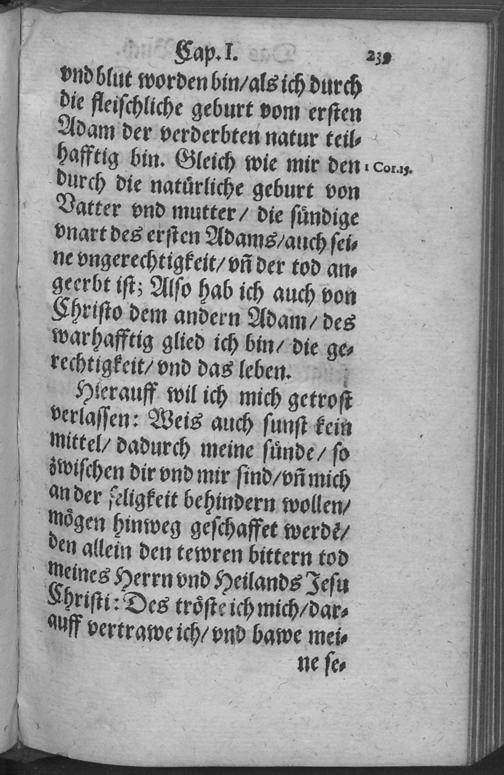 Cap. I. 239
vnd blut worden bin/als ich durch
die fleischliche geburt vom ersten
Adam der verderbten natur teil-
hafftig bin. Gleich wie mir den
1 Cor.15.
durch die natürliche geburt von
Vatter vnd mutter/ die sündige
vnart des ersten Adams/auch sei-
ne vngerechtigkeit/ vn̄ der tod an-
geerbt ist; Also hab ich auch von
Christo dem andern Adam/ des
warhafftig glied ich bin/ die ge-
rechtigkeit/ vnd das leben.
Hierauff wil ich mich getrost
verlassen: Weis auch sunst kein
mittel/ dadurch meine sünde/ so
zwischen dir vnd mir sind/ vn̄ mich
an der seligkeit behindern wollen/
mögen hinweg geschaffet werdē/
den allein den tewren bittern tod
meines Herrn vnd Heilands Jesu
Christi: Des tröste ich mich/ dar-
auff vertrawe ich/ vnd bawe mei-
ne se-